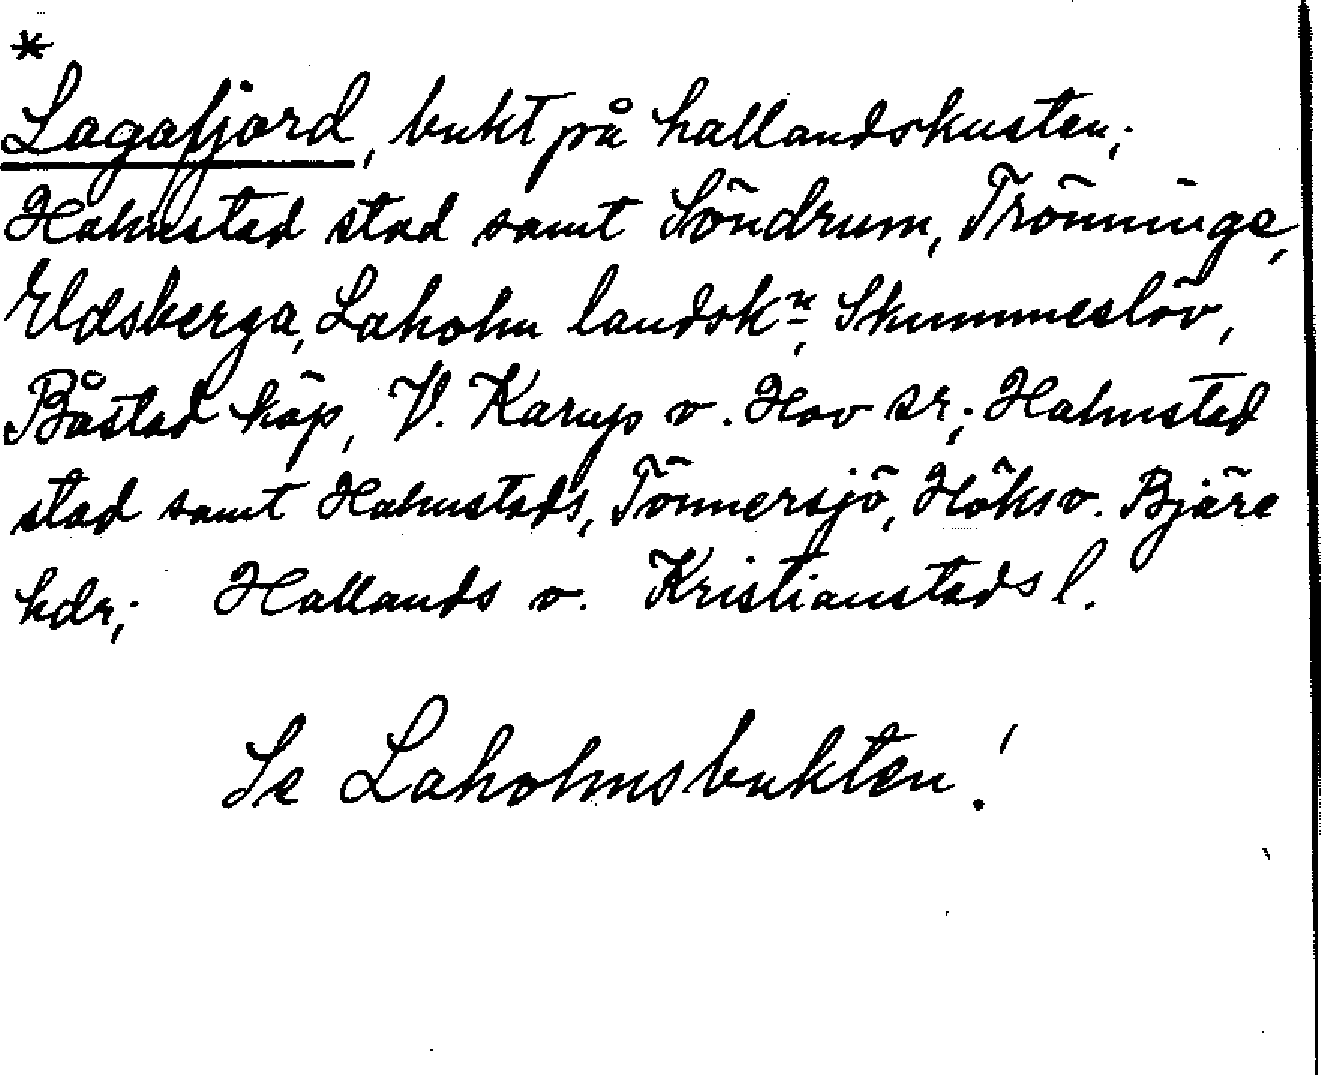 *
Lagafjord, bukt på hallandskusten;
Halmstad stad samt Söndrum, Trönninge,
Eldsberga, Laholm landskn, Skummeslöv,
Båstad köp, V. Karup o. Hov sr; Halmstad
stad samt Halmstads, Tönnersjö, Höks o. Bjäre
hdr; Hallands o. Kristianstads l.
Se Laholmsbukten!